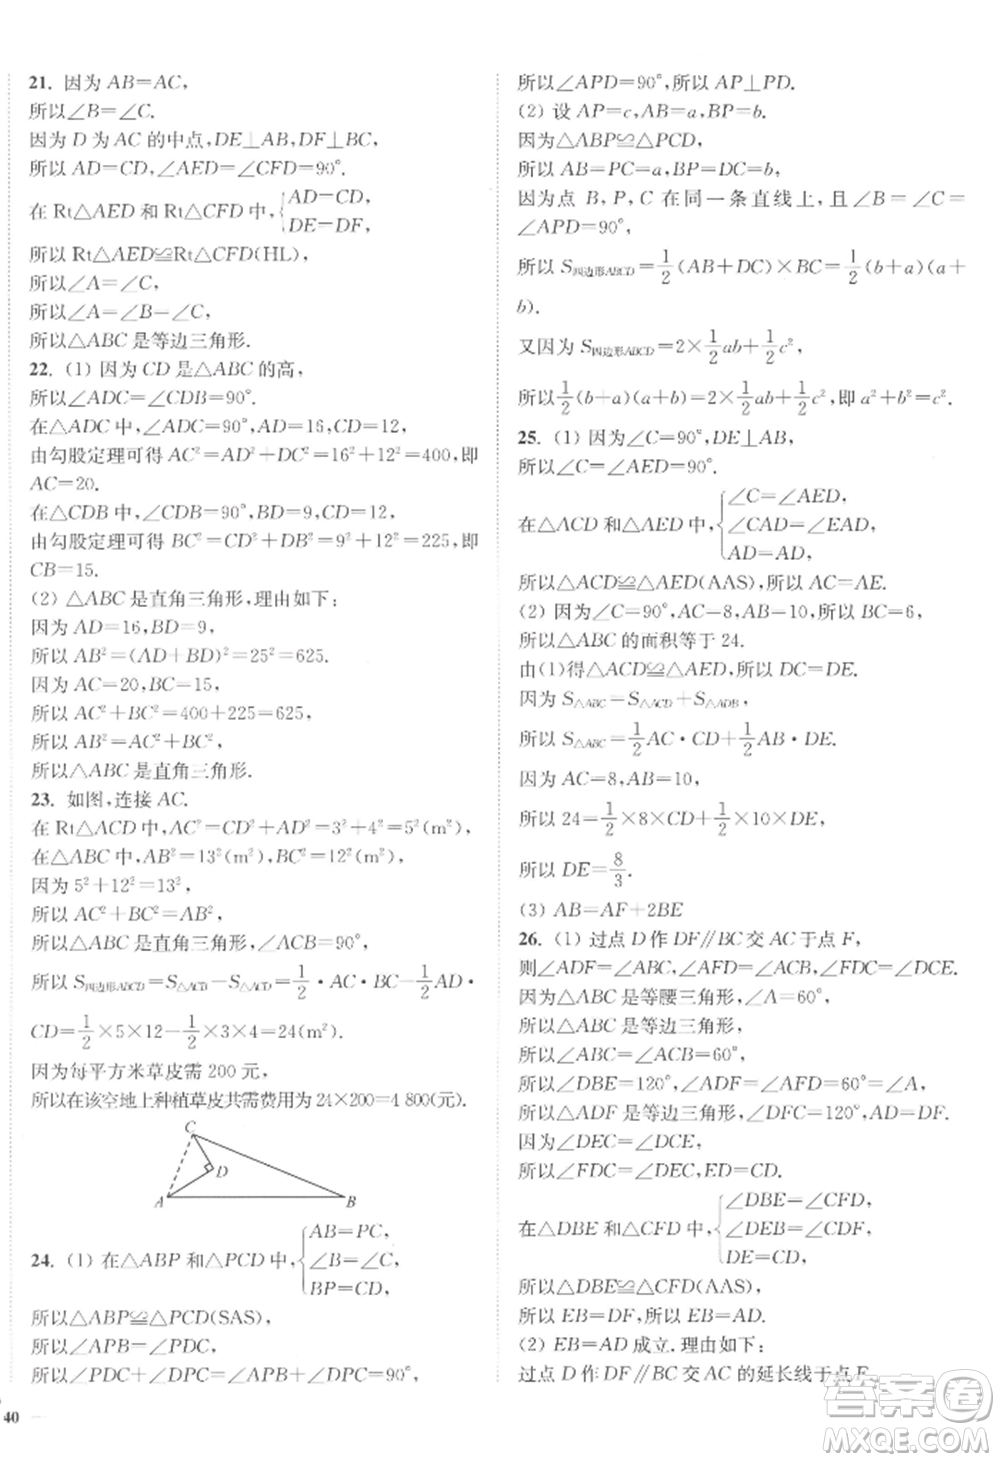 21. 因为 AB=AC,
所以∠B=∠C.
因为 D 为 AC 的中点,DE⊥AB,DF⊥BC,
所以 AD=CD,∠AED=∠CFD=90°.
在 Rt△AED 和 Rt△CFD 中,{AD=CD, DE=DF,
所以 Rt△AED≌Rt△CFD(HL),
所以∠A=∠C,
所以∠A=∠B=∠C,
所以△ABC 是等边三角形.
22. (1) 因为 CD 是△ABC 的高,
所以∠ADC=∠CDB=90°.
在△ADC 中,∠ADC=90°,AD=16,CD=12,
由勾股定理可得 AC²=AD²+DC²=16²+12²=400,即
AC=20.
在△CDB 中,∠CDB=90°,CD=12,
由勾股定理可得 BC²=CD²+DB²=9²+12²=225,即
CB=15.
(2) △ABC 是直角三角形,理由如下:
因为 AD=16,BD=9,
所以 AB²=(AD+BD)²=25²=625.
因为 AC=20,BC=15,
所以 AC²+BC²=400+225=625,
所以 AB²=AC²+BC²,
所以△ABC 是直角三角形.
23. 如图,连接 AC.
在 Rt△ACD 中,AC²=CD²+AD²=3²+4²=5²(m²),
在△ABC 中,AB²=13²(m²),BC²=12²(m²),
因为 5²+12²=13²,
所以 AC²+BC²=AB²,
所以△ABC 是直角三角形,∠ACB=90°,
所以 S四边形ABCD=S△ACB−S△ACD=1/2·AC·BC−1/2AD·
CD=1/2×5×12−1/2×3×4=24(m²).
因为每平方米草皮需 200 元,
所以在该空地上种植草皮共需费用为 24×200=4 800(元).
C
D
A
B
24. (1) 在△ABP 和△PCD 中,{AB=PC, ∠B=∠C, BP=CD,
所以△ABP≌△PCD(SAS),
所以∠APB=∠PDC,
所以∠PDC+∠DPC=∠APB+∠DPC=90°,
40
所以∠APD=90°,所以 AP⊥PD.
(2) 设 AP=c,AB=a,BP=b.
因为△ABP≌△PCD,
所以 AB=PC=a,BP=DC=b,
因为点 B, P, C 在同一条直线上,且∠B=∠C=
∠APD=90°,
所以 S四边形ABCD=1/2(AB+DC)×BC=1/2(b+a)(a+
b).
又因为 S四边形ABCD=2×1/2ab+1/2c²,
所以1/2(b+a)(a+b)=2×1/2ab+1/2c²,即 a²+b²=c².
25. (1) 因为∠C=90°,DE⊥AB,
所以∠C=∠AED=90°.
在△ACD 和△AED 中,{∠C=∠AED, ∠CAD=∠EAD, AD=AD,
所以△ACD≌△AED(AAS),所以 AC=AE.
(2) 因为∠C=90°,AC=8,AB=10,所以 BC=6,
所以△ABC 的面积等于 24.
由(1)得△ACD≌△AED,所以 DC=DE.
因为 S△ABC=S△ACD+S△ADB,
所以 S△ABC=1/2AC·CD+1/2AB·DE.
因为 AC=8,AB=10,
所以 24=1/2×8×CD+1/2×10×DE,
所以 DE=8/3.
(3) AB=AF+2BE
26. (1) 过点 D 作 DF∥BC 交 AC 于点 F,
则∠ADF=∠ABC,∠AFD=∠ACB,∠FDC=∠DCE.
因为△ABC 是等腰三角形,∠A=60°,
所以△ABC 是等边三角形,
所以∠ABC=∠ACB=60°,
所以∠DBE=120°,∠ADF=∠AFD=60°=∠A,
所以△ADF 是等边三角形,∠DFC=120°,AD=DF.
因为∠DEC=∠DCE,
所以∠FDC=∠DEC,ED=CD.
在△DBE 和△CFD 中,{∠DBE=∠CFD, ∠DEB=∠CDF, DE=CD,
所以△DBE≌△CFD(AAS),
所以 EB=DF,所以 EB=AD.
(2) EB=AD 成立.理由如下:
过点 D 作 DF∥BC 交 AC 的延长线于点 F,
答案圈
MXQE.COM